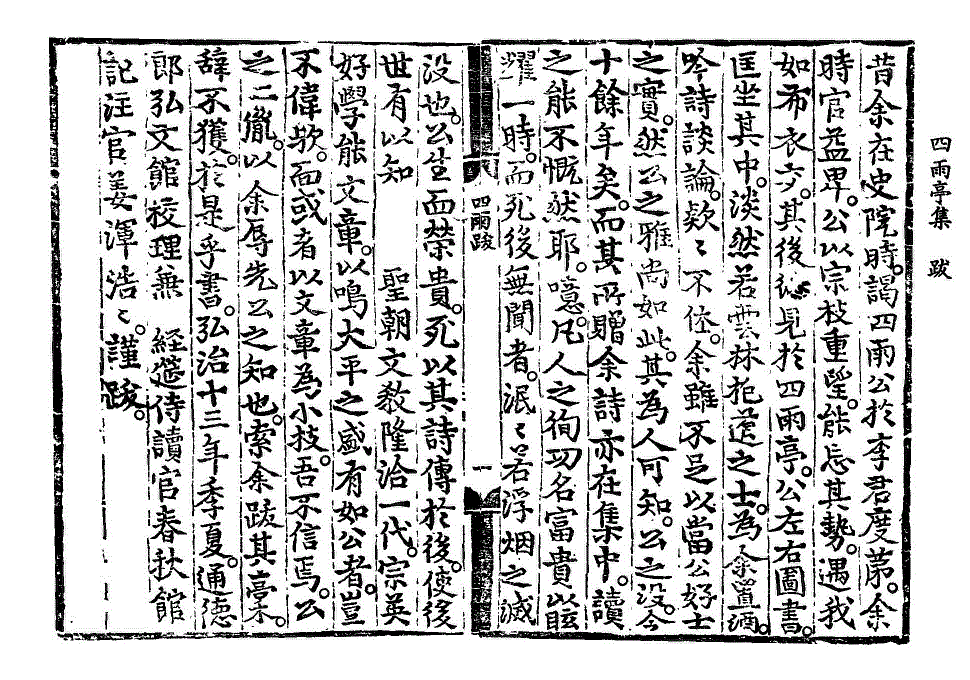 四雨亭集　跋
昔余在史院時。謁四雨公於李君度第。余
時官益卑。公以宗枝重望。能忘其勢。遇我
如布衣交。其後継見於四雨亭。公左右圖書。
匡坐其中。淡然若雲林抱道之士。爲余置酒。
吟詩談論。欵〻不倦。余雖不足以當公好士
之實。然公之雅尚如此。其爲人可知。公之没。今
十餘年矣。而其所贈余詩亦在集中。讀
之能不慨然耶。噫。凡人之徇功名富貴。以眩
耀一時。而死後無聞者。泯〻若浮烟之滅
四雨跋
一
没也。公生而榮貴。死以其詩傳於後。使後
世有以知
聖朝文敎隆洽一代。宗英
好學能文章。以鳴大平之盛有如公者。豈
不偉歟。而或者以文章為小技。吾不信焉。公
之二胤。以余辱先公之知也。索余跋其亭藁。
辞不獲。於是乎書。弘治十三年季夏。通德
郎弘文館校理兼　経筵侍讀官春秋館
記注官姜渾浩〻。謹跋。